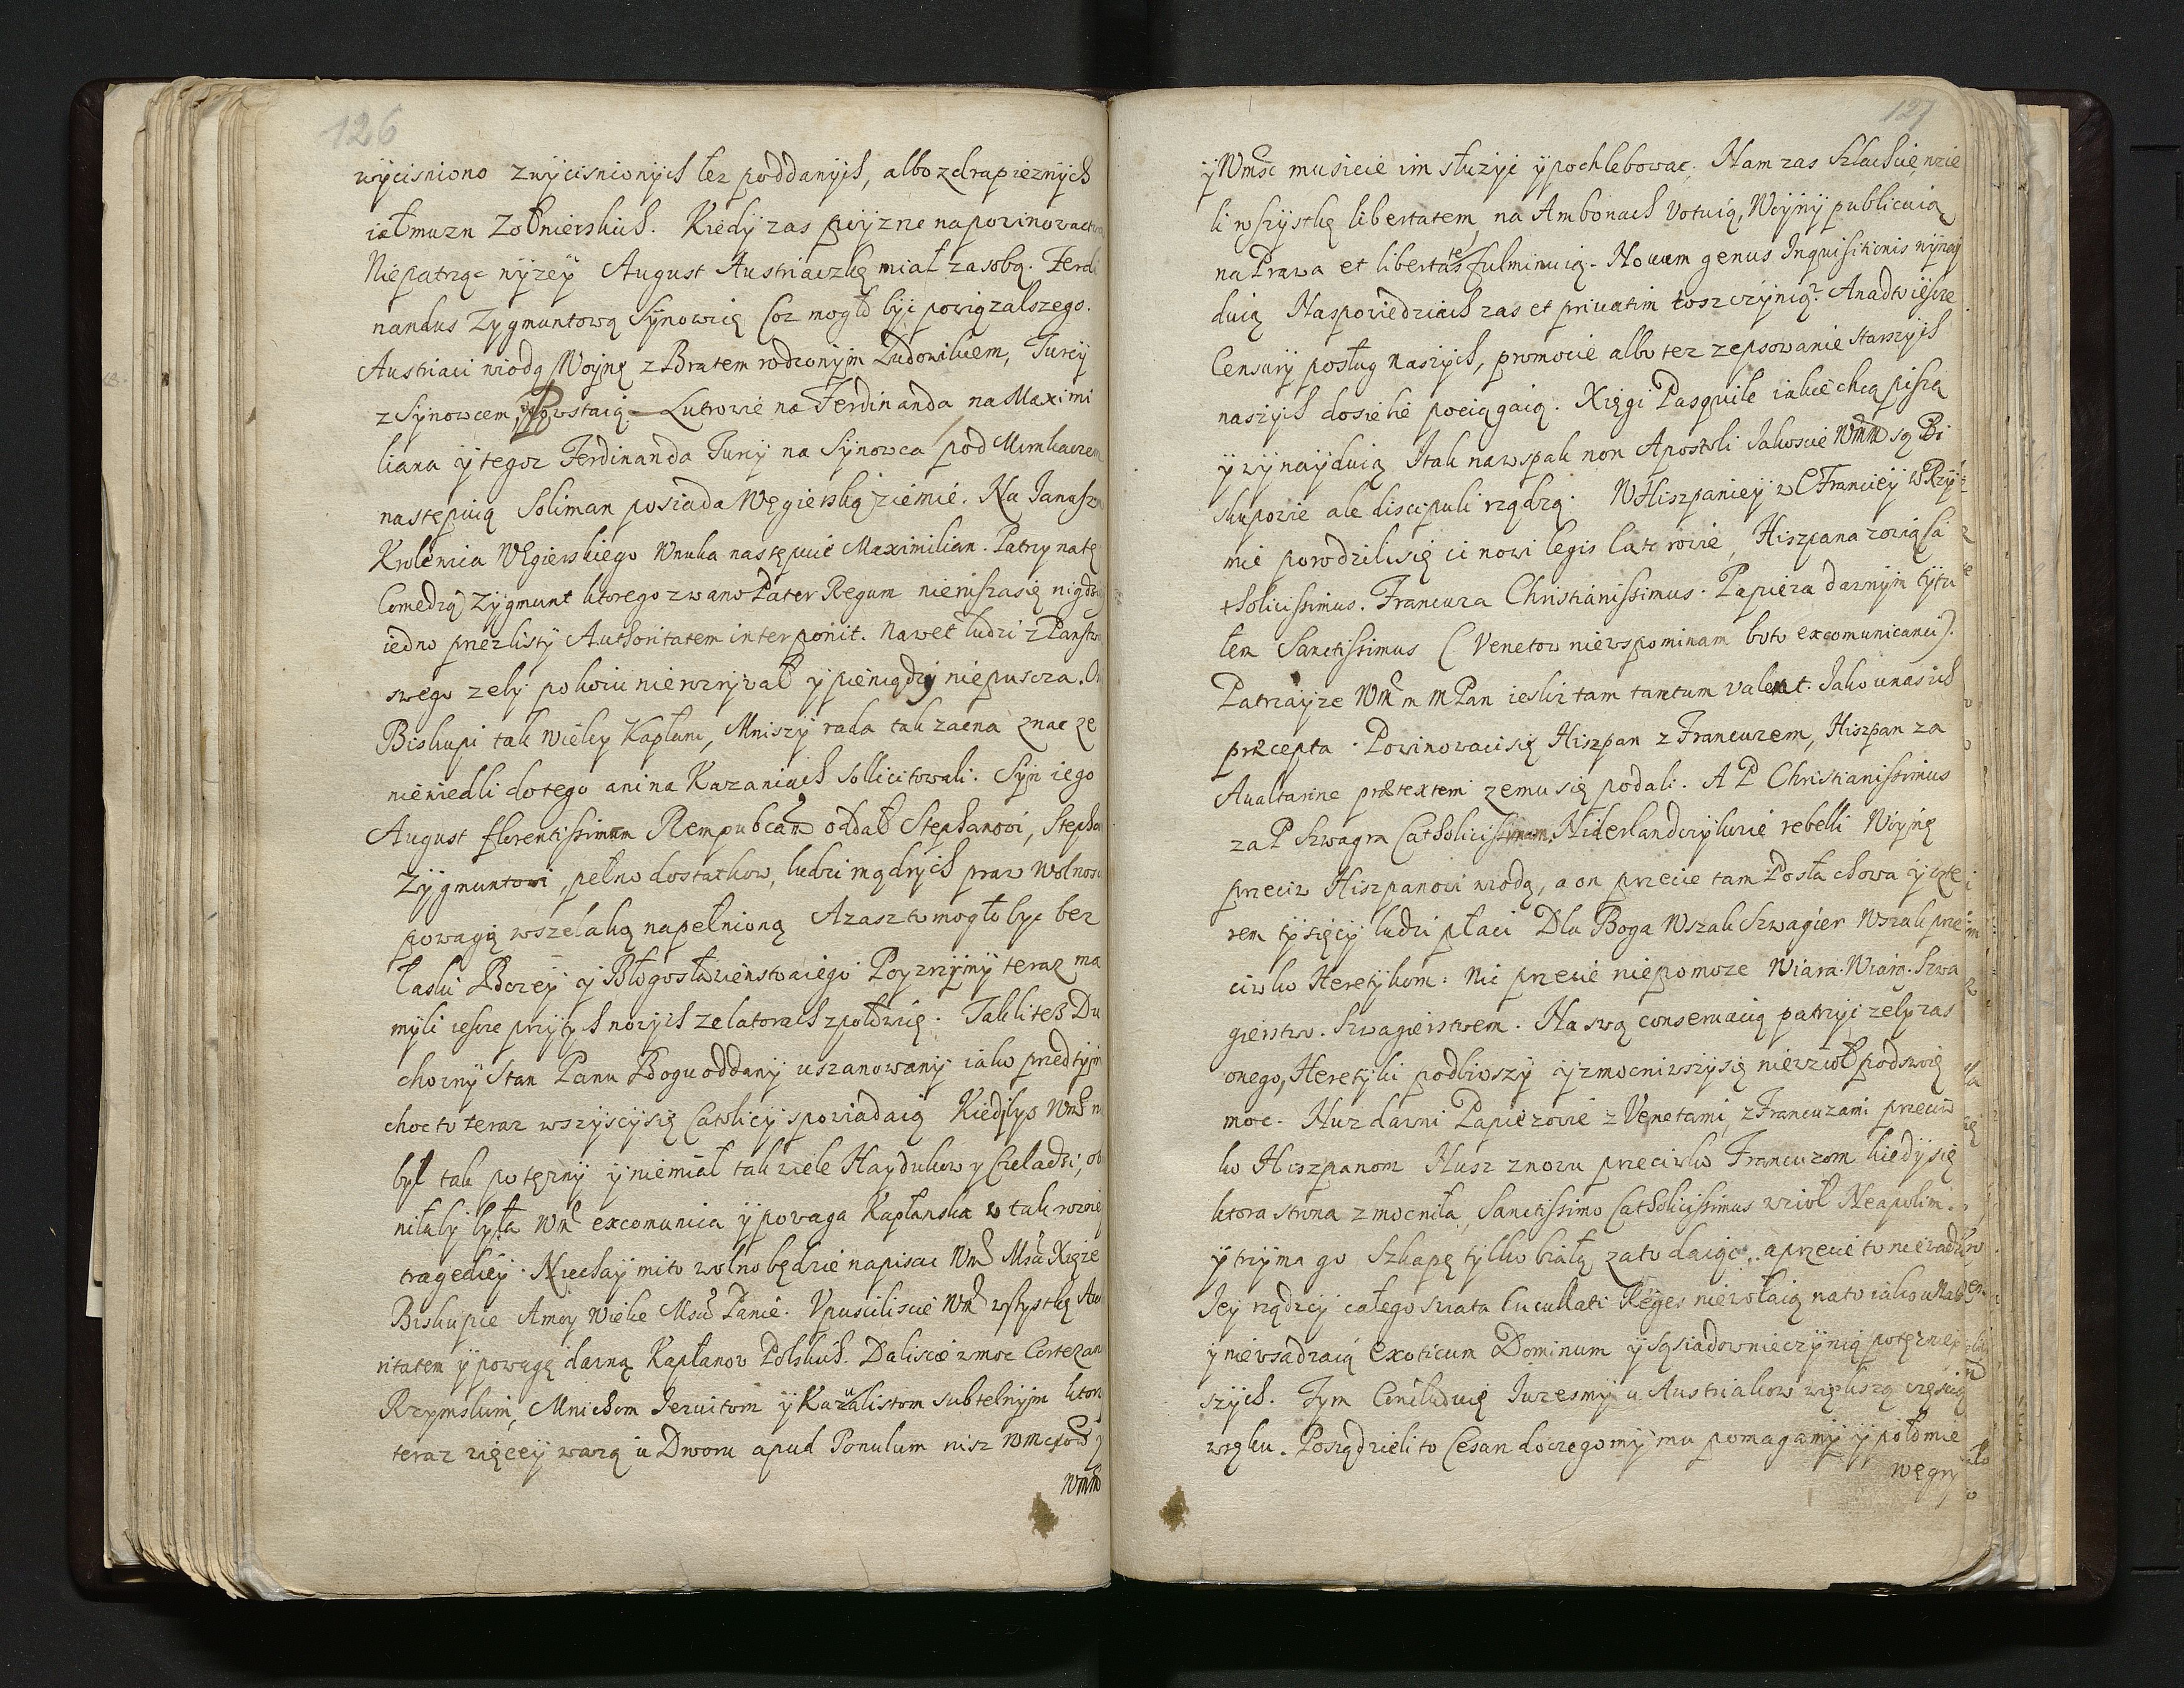 126
wycisniono zwycisnionych łez poddanych, albo zdrapieznych
iałmuzn Zołnierskich. Kiedy zas pojzrze na powinowactwo
Niepatrząc nyzey August Austriaczkę miał za sobą. Ferdi
nandus Zygmuntową Synowię Coz mogło byc powiązalszego.
Austriaci wiodą Woynę z Bratem rodzonym Ludowikiem, Turcy
z Synowcem, Powstaią Lutrowie na Ferdinanda na Maximi
liana y tegoz Ferdinanda Turcy na Synowca pod Munkaczem
nastepuią Soliman posiada Węgierską ziemię. Na Janusza
Krolewica Węgierskiego Wnuka następuie Maximilian. Patrzy na tę
Comedią Zygmunt ktorego zwano Pater Regum nierusza się nigdzie
iedno przez listy Authoritatem interponit. Nawet ludzi z Panstwa
swego zeby pokoiu niewzrywał y pieniędzy niepuscza.
Biskupi tak wielcy Kapłani, Mniszy rada tak zacna znac ze
niewiedli do tego ani na Kazaniach sollicitowali. Syn iego
August florentissimam Rempubcam oddał Stephanowi, Stephan
Zygmuntowi, pełno dostatkow, ludzi mądrych praw wolnosci
powagą wszelaką napełnioną Azasz to mogło byc bez
łaski Bozey y Błogosławienstwa iego Poyzrzyny teraz ma
myli iescze przy tych nowych zelatorach zpołowię. Takli tesz Du
chowny Stan Panu Bogu oddany uszanowany iako przed tym
choc to teraz wszyscy się Catolicy spowiadaią Kiedybys WM
był tak potęzny y niemiał tak wiele Haydukow y Czeladzi, ob
niłaby była WM excomunica y powaga Kapłanska w tak rozney
tragediey. Niechay mi to wolno będzie napisac WM Msci Xięze
Biskupie A moy Wielce Msci Panie. Vpusciliscie WM wszystkę Auto
ritatem y powagę dawną Kapłanow Polskich. Daliscie w moc Cortezan
Rzymskim, Mnichom Jezuitom y Kazualistom subtelnym ktorzy
teraz więcey wazą u Dworu apud Populum nisz WMciow y
WMM
127
y WMsc musicie im służyc y pochlebowac. Nam zas Szlachcie, wzie
li wszystkę libertatem, na Ambonach Votuią, Woyny publicuią
na Prawa et libertates fulminuią. Novum genus Inquisitionis wynay
duią Na spowiedziach zas et privatim tosz czynią. A nadto iescze
Censury posług naszych, promocie albo tez zepsowanie starszych
naszych do siebie pociągaią. Xięgi Pasquile iakie chcą piszą
y wynayduią I tak nawspak non Apostoli Jakoscie WMM są Bi
skupowie ale discipuli rządzą. W Hiszpaniey w Franciey w Rzy
mie porodzili się ci nowi legislatorowie, Hiszpana zowią Ca
tholicissimus. Francuza Christianissimus. Papieza dawnym tytu
łem Sanctissimus (Venetow niewspominam boto excomunicanci).
Patrzayze WM m MPan ieslisz tam tantum valent. Jako u nas ich
præcepta. Powinowaci się Hiszpan z Francuzem, Hiszpan za
Aualtarine prætextem ze mu się podali. A P Christianissimus
za P Szwagra Catholicissimum. Niderlandczykowie rebelli Woynę
przeciw Hiszpanowi wiodą, a on przecie tam Posła chowa y czte
rem tysięcy ludzi płaci Dla Boga Wszak Szwagier Wszak prze
ciwko Heretykom: Nic przecie niepomoze Wiara. Wiarą. Szwa
gierstwo. Szwagierstwem. Na swą conseruacią patrzy zeby zas
onego, Heretyki podbiwszy y zmocniwszy się niewziął pod swię
moc. Nuz dawni Papiezowie z Venetami, z Francuzami przeciw
ko Hiszpanom Nusz znowu przeciwko Francuzom kiedy się
ktora strona zmocniła, Sanctissimo Catholicissimus wziął Neapolim.
y trzyma go Szkapę tylko białą za to daiąc. a przecie to
Jey rządzcy całego swiata Cucullati Reges niewołaią na to iako u Nas
y niewsadzaią Exoticum Dominum y sąsiadow nieczynią potęzniey
szych. Tym Concluduię Juzesmy u Austriakow większą częscią
w ręku. Posądzieli to Cesarz do czego my mu pomagamy y połomie
węgry